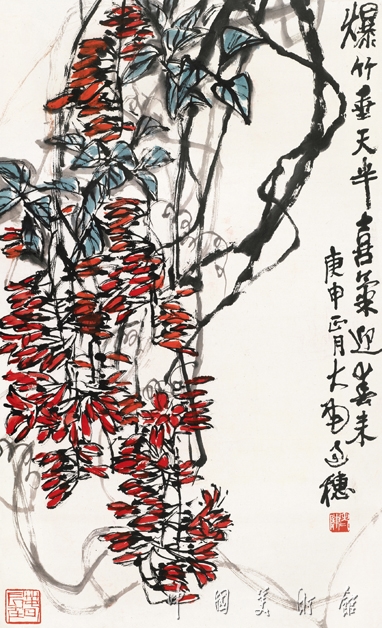 爆竹垂天半喜气迎春来
庚申正月大雨过穗
中国美术馆